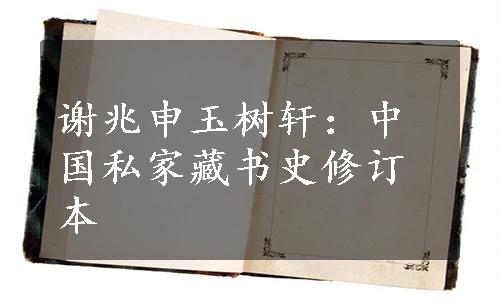 谢兆申玉树轩：中
国私家藏书史修订
本